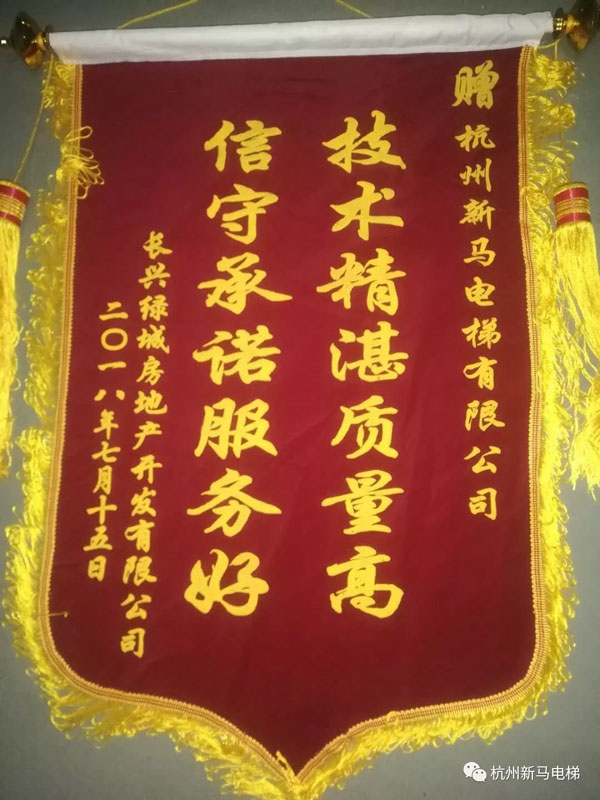 赠杭州新马电梯有限公司
技术精湛质量高
信守承诺服务好
长兴绿城房地产开发有限公司
二〇一八年七月十五日
杭州新马电梯